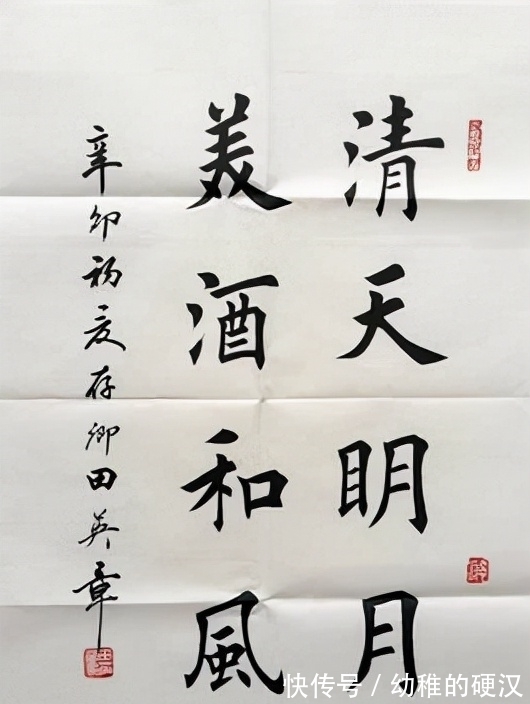 清天明月
美酒和風
辛卯初夏存卿田英章
快传号 / 幼稚的硬汉